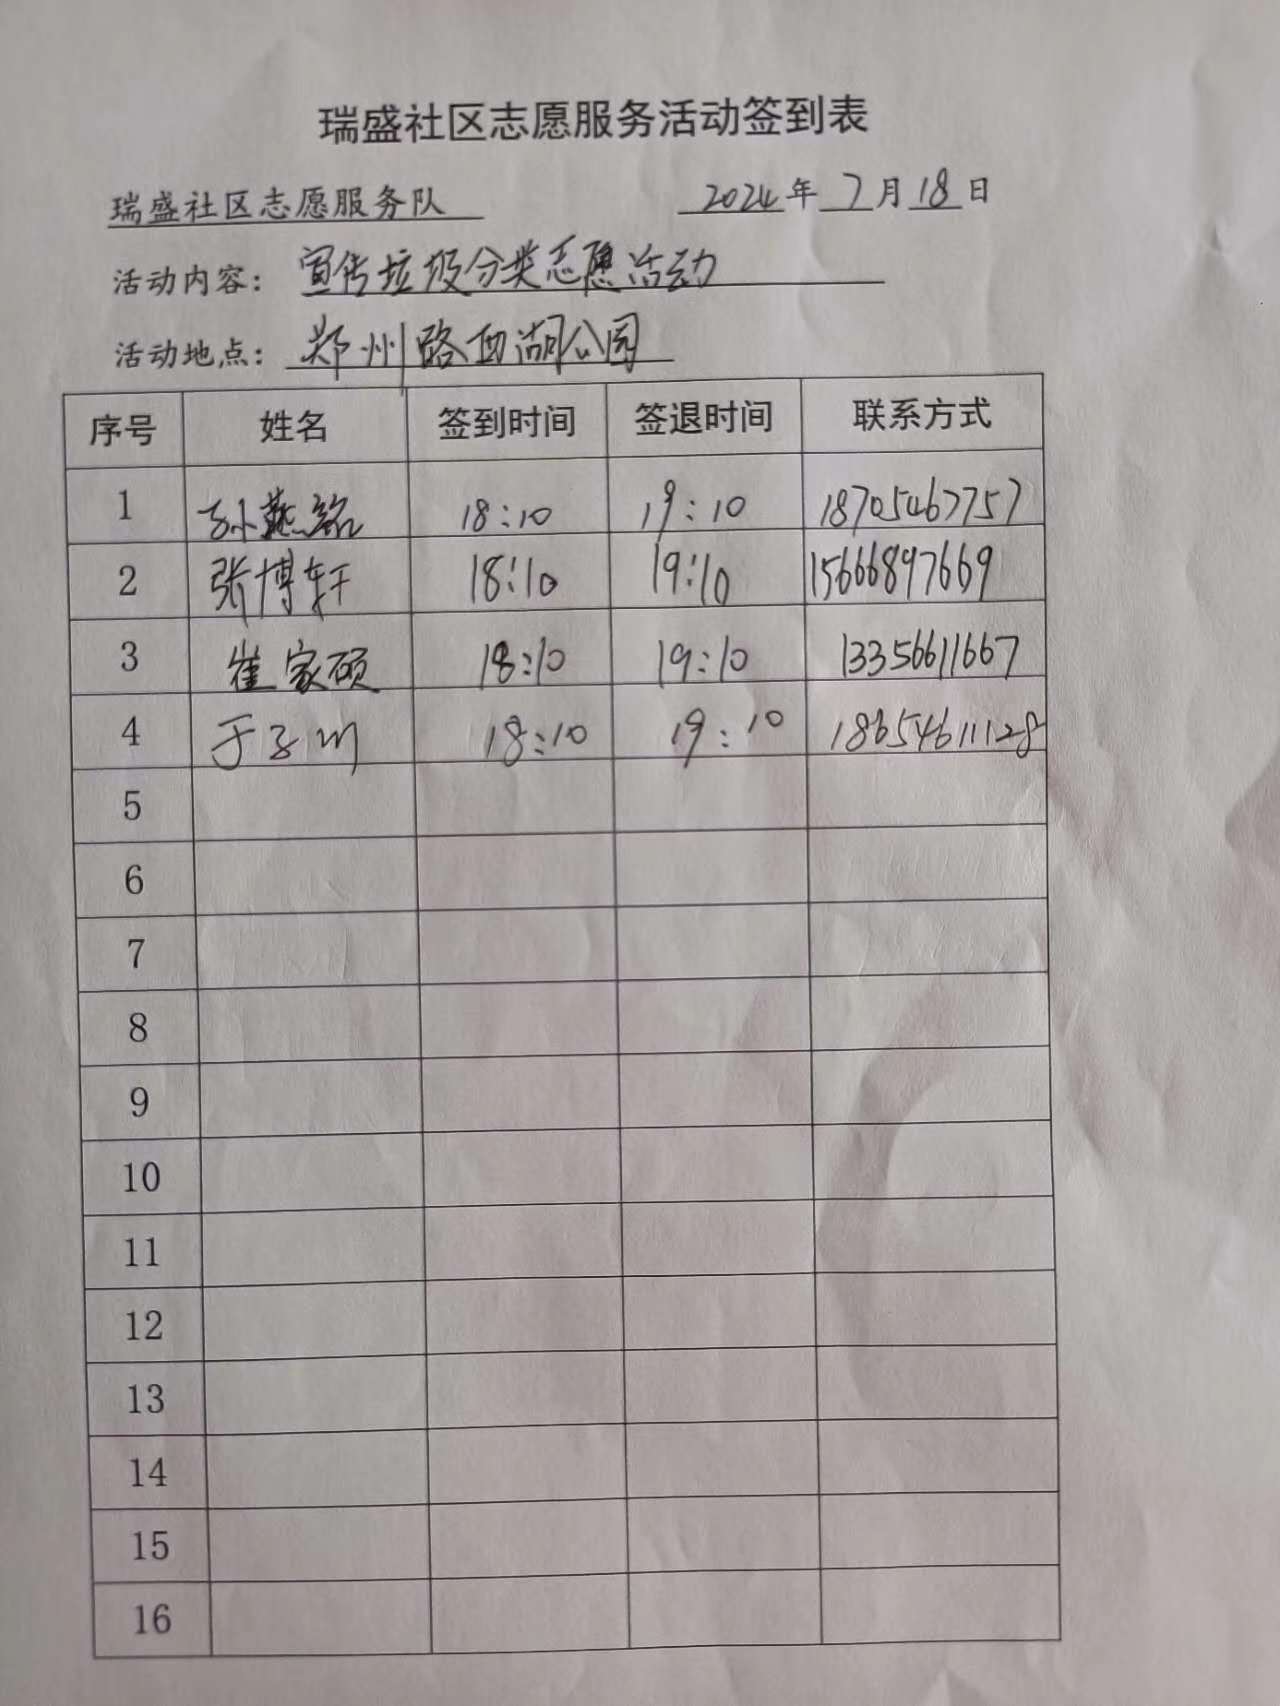 瑞盛社区志愿服务活动签到表
瑞盛社区志愿服务队 2024年7月18日
活动内容：宣传垃圾分类志愿活动
活动地点：郑州路西湖公园
序号 姓名 签到时间 签退时间 联系方式
1 孙燕铭 18:10 19:10 18705467757
2 张博轩 18:10 19:10 15666897669
3 崔家硕 18:10 19:10 13356611667
4 于子川 18:10 19:10 18654611128
5
6
7
8
9
10
11
12
13
14
15
16